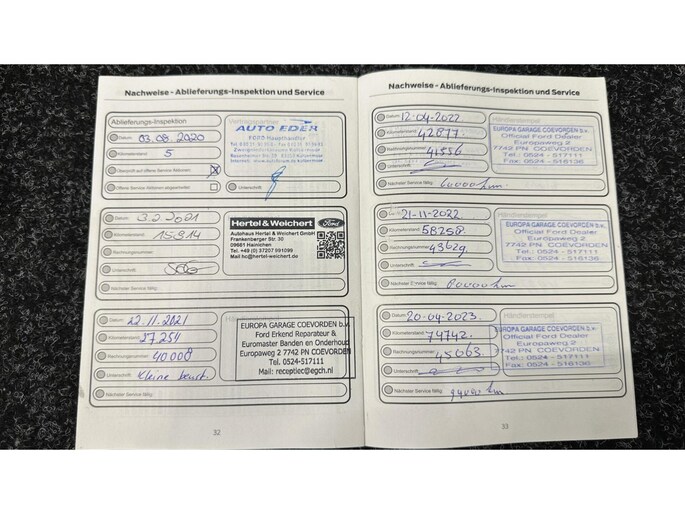 Nachweise - Ablieferungs-Inspektion und Service
Ablieferungs-Inspektion
Datum: 03.08.2020
Kilometerstand: 5
Überprüft auf offene Service Aktionen: X
Offene Service Aktionen abgearbeitet
Vertragspartner
AUTO EDER
FORD Haupthändler
Unterschrift
Datum: 3.2.2021
Kilometerstand: 15314
Rechnungsnummer:
Unterschrift:
Nächster Service fällig:
Hertel & Weichert
Ford
Autohaus Hertel & Weichert GmbH
Frankenberger Str. 50
09661 Hainichen
Tel. +49 (0) 37207 991099
Mail hc@hertel-weichert.de
Datum: 22.11.2021
Kilometerstand: 27.254
Rechnungsnummer: 40008
Unterschrift: Kleine beurt.
Nächster Service fällig:
EUROPA GARAGE COEVORDEN b.v.
Ford Erkend Reparateur &
Euromaster Banden en Onderhoud
Europaweg 2 7742 PN COEVORDEN
Tel. 0524-517111
Mail: receptiec@egch.nl
32
Nachweise - Ablieferungs-Inspektion und Service
Datum: 12-04-2022
Kilometerstand: 42877
Rechnungsnummer: 41556
Unterschrift:
Nächster Service fällig: 60000 km
Händlerstempel
EUROPA GARAGE COEVORDEN b.v.
Official Ford Dealer
Europaweg 2
7742 PN COEVORDEN
Tel.: 0524 - 517111
Fax: 0524 - 516136
21-11-2022
Kilometerstand: 58258
Rechnungsnummer: 43629
Unterschrift:
80000 km
Händlerstempel
EUROPA GARAGE COEVORDEN b.v.
Official Ford Dealer
Europaweg 2
7742 PN COEVORDEN
Tel.: 0524 - 517111
Fax: 0524 - 516136
Datum: 20-04-2023
Kilometerstand: 74742
Rechnungsnummer: 45063
Unterschrift:
Nächster Service fällig: 94000 km
Händlerstempel
EUROPA GARAGE COEVORDEN b.v.
Official Ford Dealer
Europaweg 2
7742 PN COEVORDEN
Tel.: 0524 - 517111
Fax: 0524 - 516136
33